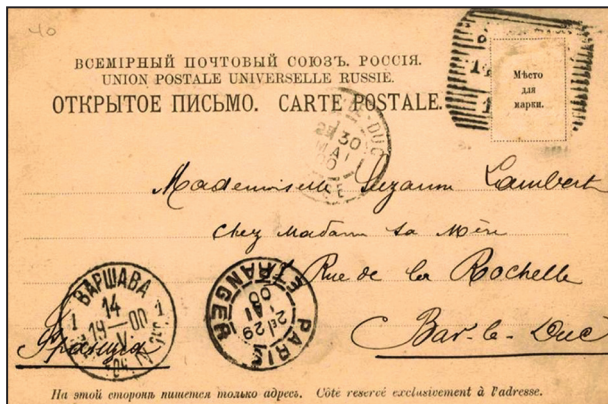 40
ВСЕМІРНЫЙ ПОЧТОВЫЙ СОЮЗЪ. РОССІЯ.
UNION POSTALE UNIVERSELLE RUSSIE.
ОТКРЫТОЕ ПИСЬМО. CARTE POSTALE.
Мѣсто
для
марки.
DUC
30
MAI
00
Mademoiselle Suzanne Lambert
chez Madame sa Mère
Rue de la Rochelle
Bar-le-Duc
ВАРШАВА
14
1 19 — 00 1
V
PARIS
ETRANGER
29
MAI
00
На этой сторонѣ пишется только адресъ. Côté reservé exclusivement à l'adresse.